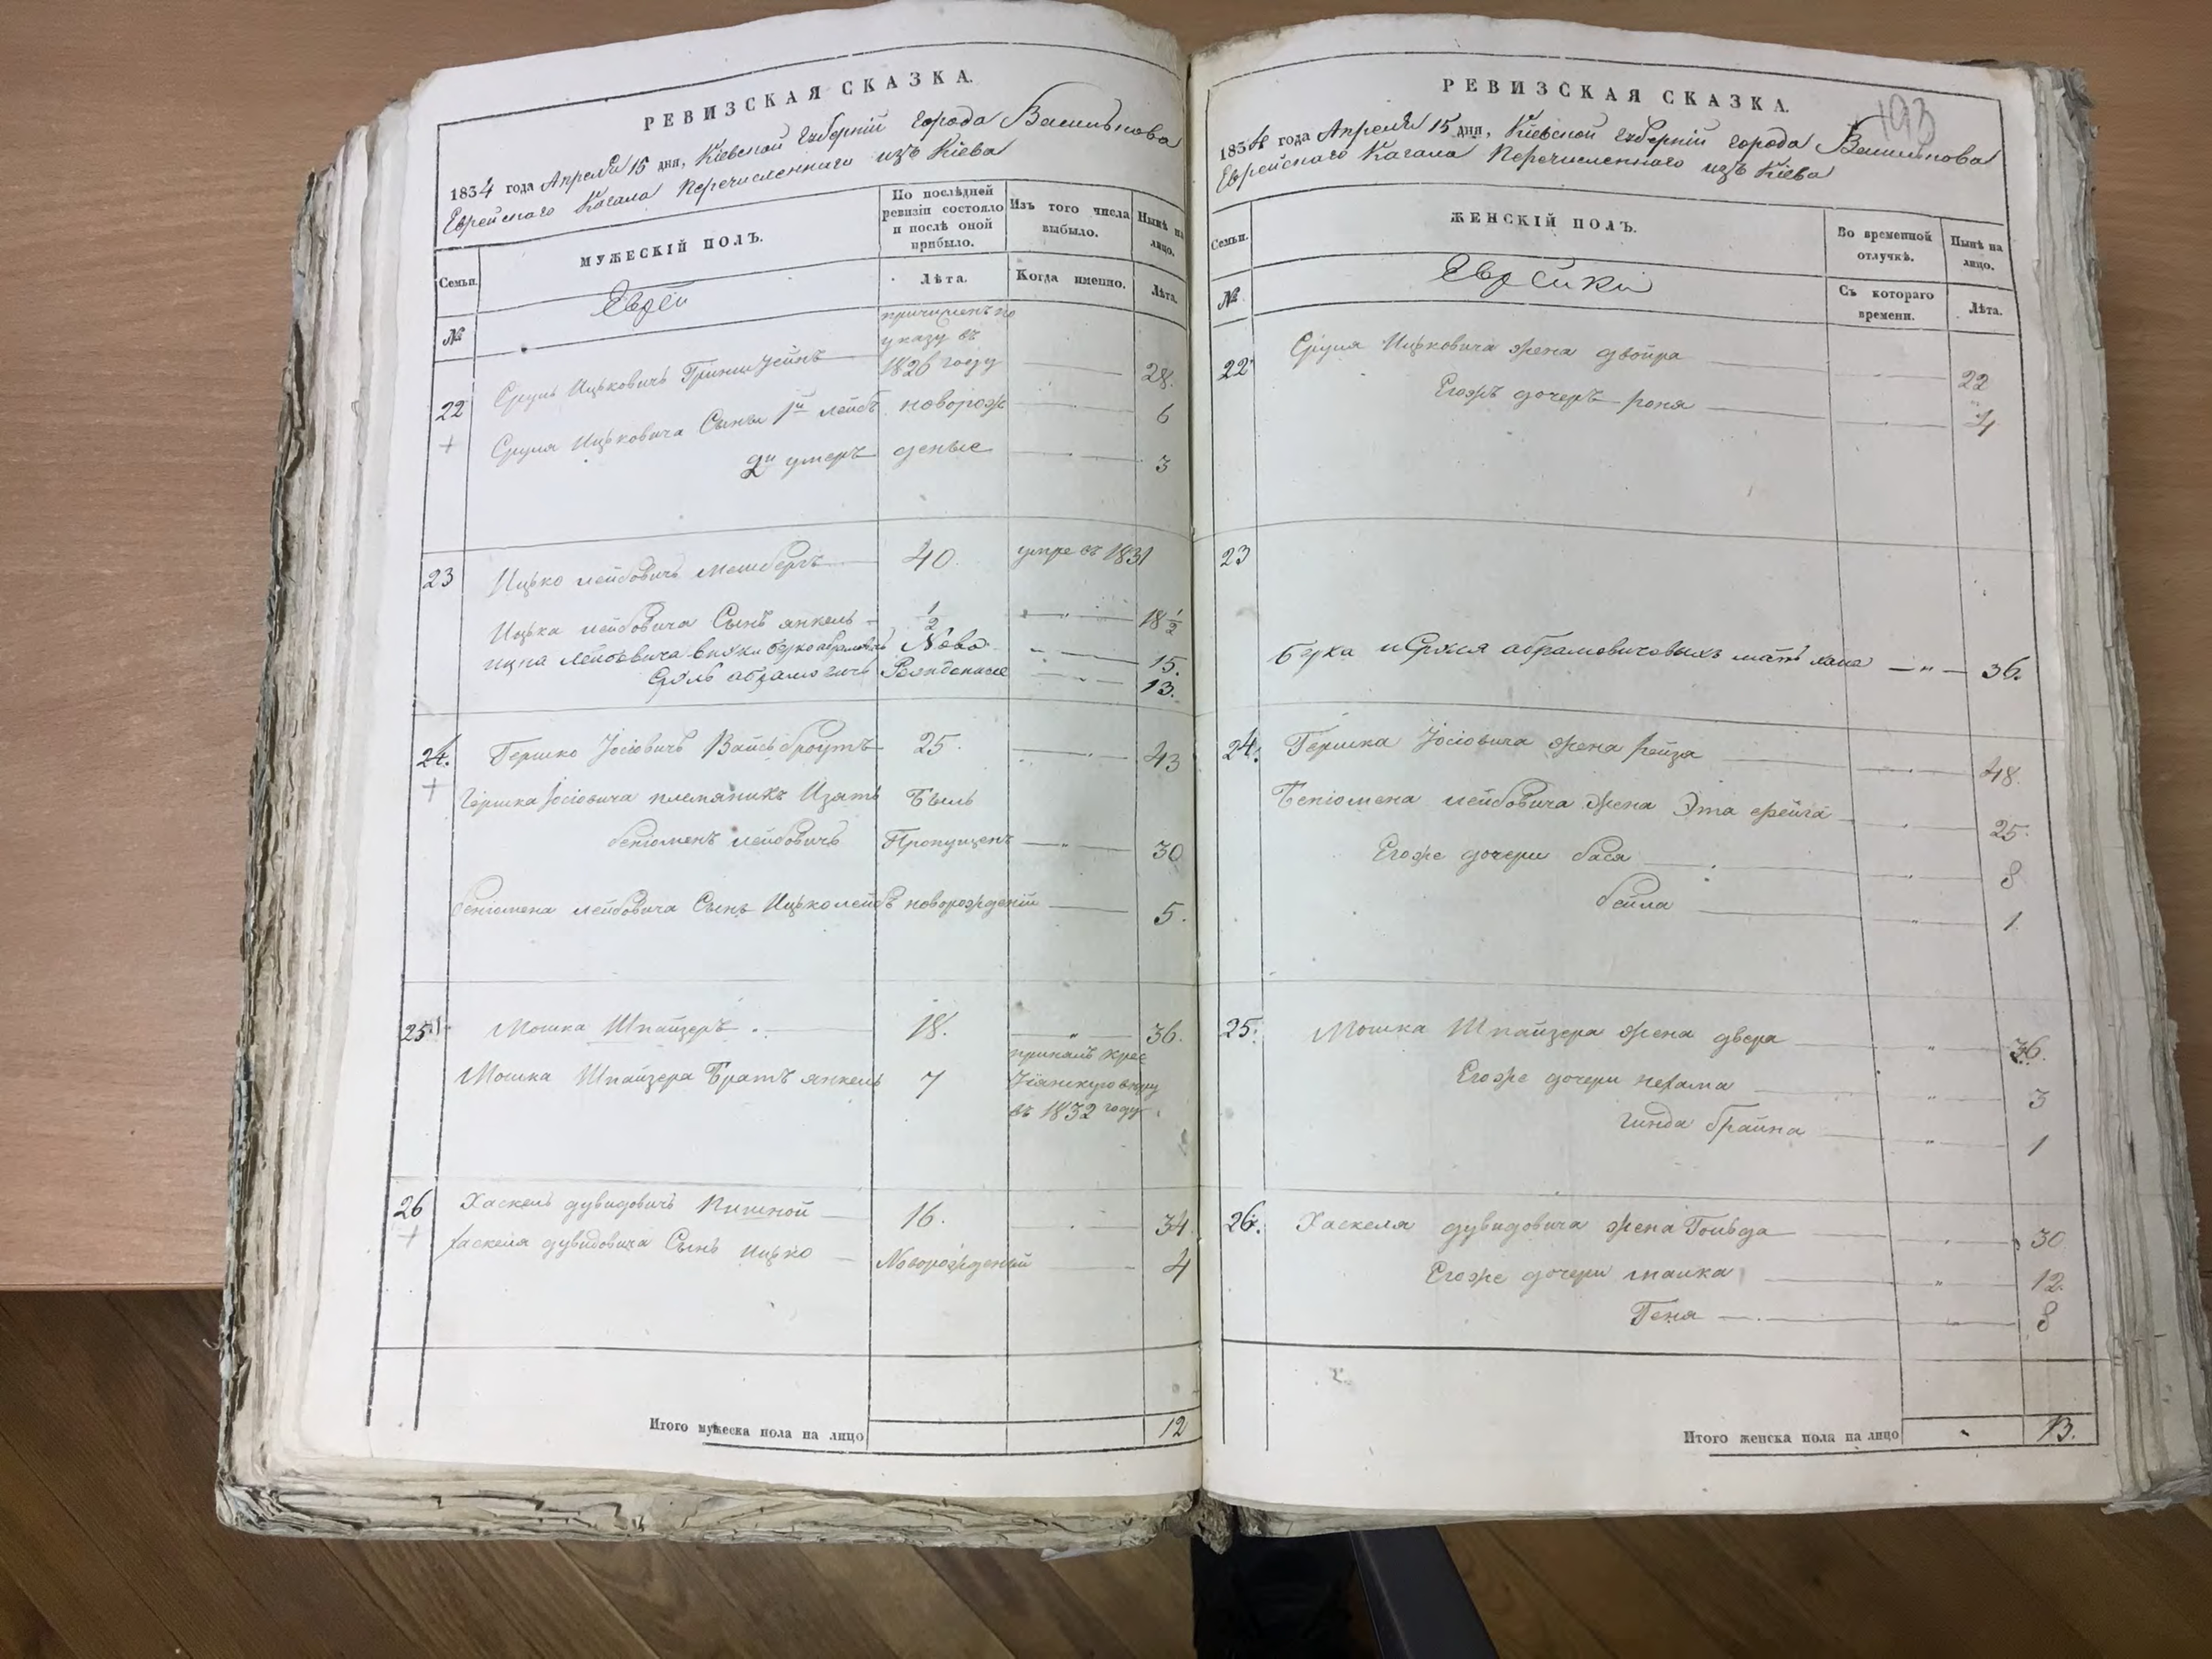 РЕВИЗСКАЯ СКАЗКА.
1834 года Апреля 15 дня, Кіевской Губерніи города Василькова
Еврейскаго Кагала Перечисленнаго изъ Кіева
Семьи.
МУЖЕСКІЙ ПОЛЪ.
По послѣдней ревизіи состояло и послѣ оной прибыло.
Изъ того числа выбыло.
Нынѣ на лицо.
№
Еврей
Лѣта.
Когда именно.
Лѣта.
причисленъ по
указу въ
22 Срулъ Ицьковичъ 1826 году 28.
Сруля Ицьковича Сыны 1й лейбъ новорож 6
2й умеръ деные 3
23 Ицько лейбовичъ 40. умре въ 1831
Ицька лейбовича Сынъ янкель 1/2 18 1/2
ицка Лейбовича внуки берко абрамовичъ Ново 15.
Сруль абрамовичъ Рожденные 13.
24. Гершко Јосіовичъ Вайсьброутъ 25. 43
Гершка Јосіовича племяникъ Изять Быль
беніоменъ лейбовичъ Пропущенъ 30
беніомена лейбовича Сынъ Ицьколейбъ новорожденій 5.
25. Мошка Шпайзеръ. 18. 36.
принялъ хрис
Мошка Шпайзера Братъ янкель 7 тіянскую веру
въ 1832 году.
26 Хаскель дувидовичъ 16. 34
хаскеля дувидовича Сынъ ицько Новорожденый 4
Итого мужеска пола на лицо 12
193
РЕВИЗСКАЯ СКАЗКА.
1834 года Апреля 15 дня, Кіевской Губерніи города Василькова
Еврейскаго Кагала Перечисленнаго изъ Кіева
Семьи.
ЖЕНСКІЙ ПОЛЪ.
Во временной отлучкѣ.
Нынѣ на лицо.
№
Еврейки
Съ котораго времени.
Лѣта.
22 Сруля Ицьковича жена двойра 22
Егожъ дочеръ роня 4
23
берка и Сруля абрамовичовыхъ мать хана 36.
24. Гершка Јосіовича жена рейза 48.
Беніомена лейбовича жена Эта фейга 25.
Егоже дочери бася 8
бейла 1.
25. Мошка Шпайзера жена двера 36.
Егоже дочери нехама 3
гинда брайна 1
26. Хаскеля дувидовича жена Гольда 30
Егоже дочери 12.
Геня 8
Итого женска пола на лицо 13.